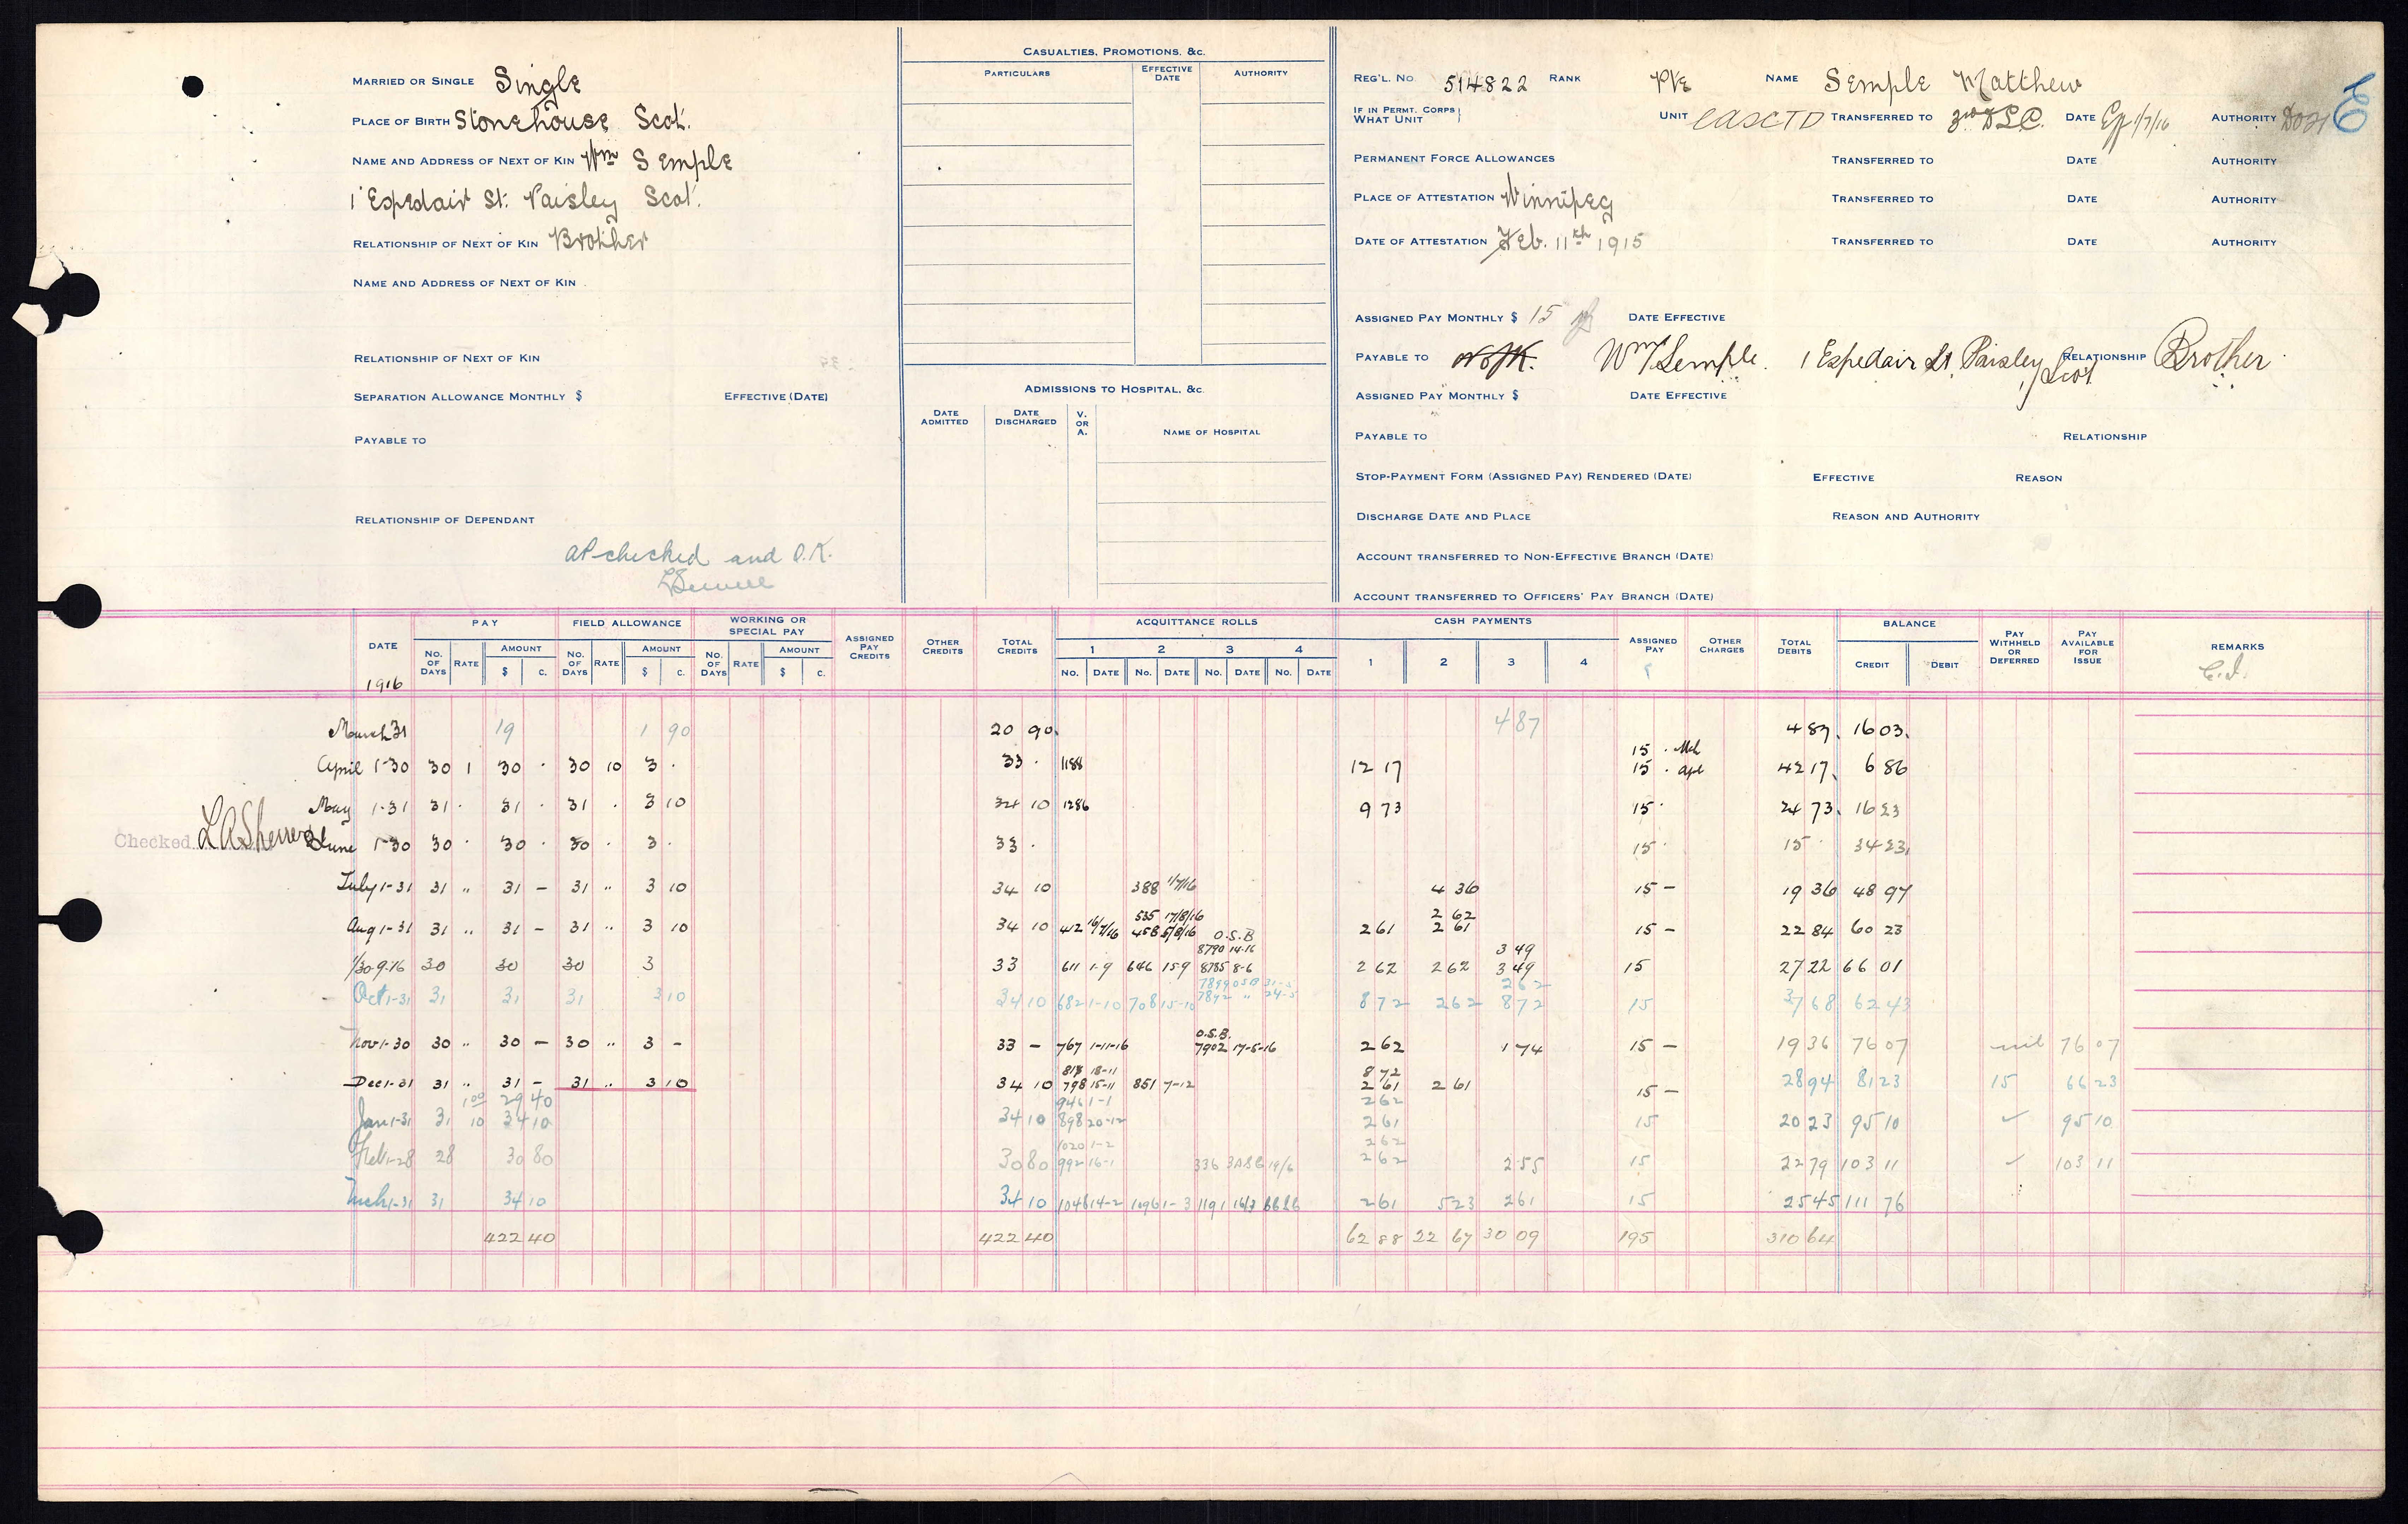 MARRIED OR SINGLE Single
PLACE OF BIRTH Stonehouse Scot.
NAME AND ADDRESS OF NEXT OF KIN Wm Semple
1 Espedair St. Paisley Scot.
RELATIONSHIP OF NEXT OF KIN Brother
NAME AND ADDRESS OF NEXT OF KIN
RELATIONSHIP OF NEXT OF KIN
SEPARATION ALLOWANCE MONTHLY $ EFFECTIVE (DATE)
PAYABLE TO
RELATIONSHIP OF DEPENDANT
AP checked and O.K.
CASUALTIES, PROMOTIONS, &c.
PARTICULARS EFFECTIVE DATE AUTHORITY
ADMISSIONS TO HOSPITAL, &c.
DATE ADMITTED DATE DISCHARGED V. OR A. NAME OF HOSPITAL
REG'L. NO. 514822 RANK Pte NAME Semple Matthew
IF IN PERMT. CORPS WHAT UNIT UNIT CASCTD TRANSFERRED TO 3rd DSC. DATE Ef 1/7/16 AUTHORITY
PERMANENT FORCE ALLOWANCES TRANSFERRED TO DATE AUTHORITY
PLACE OF ATTESTATION Winnipeg TRANSFERRED TO DATE AUTHORITY
DATE OF ATTESTATION Feb. 11th 1915 TRANSFERRED TO DATE AUTHORITY
ASSIGNED PAY MONTHLY $ 15 DATE EFFECTIVE
PAYABLE TO NofK. Wm Semple. 1 Espedair St. Paisley Scot RELATIONSHIP Brother
ASSIGNED PAY MONTHLY $ DATE EFFECTIVE
PAYABLE TO RELATIONSHIP
STOP-PAYMENT FORM (ASSIGNED PAY) RENDERED (DATE) EFFECTIVE REASON
DISCHARGE DATE AND PLACE REASON AND AUTHORITY
ACCOUNT TRANSFERRED TO NON-EFFECTIVE BRANCH (DATE)
ACCOUNT TRANSFERRED TO OFFICERS' PAY BRANCH (DATE)
DATE PAY FIELD ALLOWANCE WORKING OR SPECIAL PAY ASSIGNED PAY CREDITS OTHER CREDITS TOTAL CREDITS ACQUITTANCE ROLLS CASH PAYMENTS ASSIGNED PAY OTHER CHARGES TOTAL DEBITS BALANCE PAY WITHHELD OR DEFERRED PAY AVAILABLE FOR ISSUE REMARKS
NO. OF DAYS RATE AMOUNT $ C. NO. OF DAYS RATE AMOUNT $ C. NO. OF DAYS RATE AMOUNT $ C. 1 2 3 4 1 2 3 4 CREDIT DEBIT
NO. DATE NO. DATE NO. DATE NO. DATE
1916
March 31 19 1 90 20 90. 4 87 4 87. 16 03.
15 . Mch
April 1-30 30 1 30 . 30 10 3 . 33 . 1188 12 17 15 . Apl 42 17. 6 86
May 1-31 31 . 31 . 31 . 3 10 34 10 1286 9 73 15 . 24 73. 16 23
Checked L A Sherrerd
June 1-30 30 . 30 . 30 . 3 . 33 . 15 . 15 . 34 23.
July 1-31 31 " 31 – 31 " 3 10 34 10 388 1/7/16 4 36 15 – 19 36 48 97
535 17/8/16 2 62
Aug 1-31 31 " 31 – 31 " 3 10 34 10 412 16/7/16 458 5/8/16 2 61 2 61 15 – 22 84 60 23
O.S.B
8790 14-16 3 49
1/30.9.16 30 30 30 3 33 611 1-9 646 15-9 8785 8-6 2 62 2 62 3 49 15 27 22 66 01
7899 OSB 31-5 2 62
Oct 1-31 31 31 31 3 10 34 10 682 1-10 708 15-10 7892 " 24-5 8 72 2 62 8 72 15 37 68 62 43
O.S.B.
Nov 1-30 30 " 30 – 30 " 3 – 33 – 767 1-11-16 7902 17-5-16 2 62 1 74 15 – 19 36 76 07 nil 76 07
818 18-11 8 72
Dec 1-31 31 " 31 – 31 " 3 10 34 10 798 15-11 851 7-12 2 61 2 61 15 – 28 94 81 23 15 66 23
1 00 29 40 946 1-1 2 62
Jan 1-31 31 10 34 10 34 10 898 20-12 2 61 15 20 23 95 10 ✓ 95 10
1020 1-2 2 62
Feb 1-28 28 30 80 30 80 992 16-1 336 3ASC 19/6 2 62 2 55 15 22 79 103 11 ✓ 103 11
Mch 1-31 31 34 10 34 10 1046 14-2 1096 1-3 1191 16/3 2 61 5 23 2 61 15 25 45 111 76
422 40 422 40 62 88 22 67 30 09 195 310 64